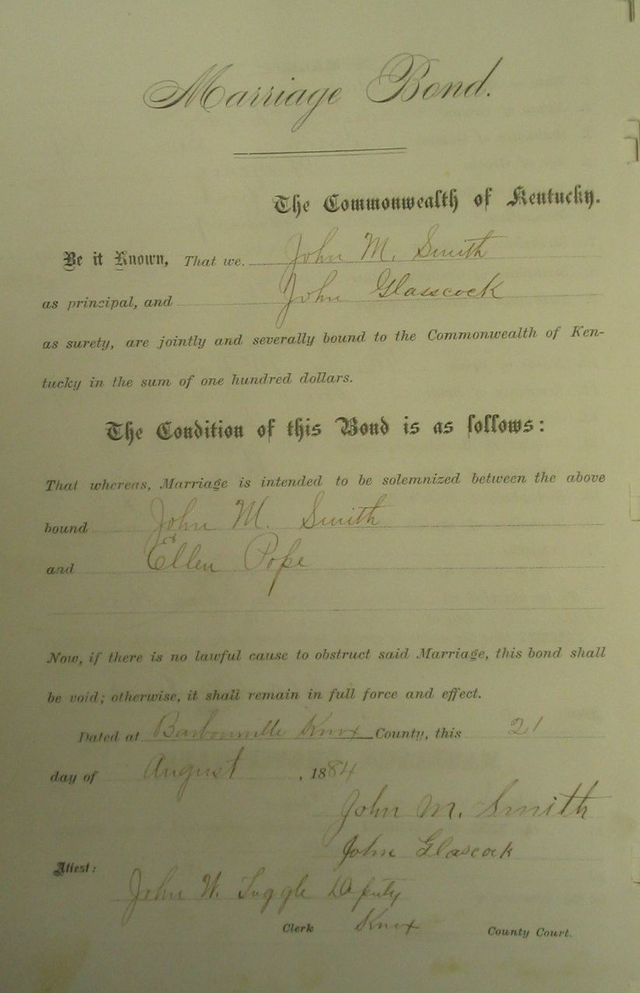 Marriage Bond.
The Commonwealth of Kentucky.
Be it Known, That we John M. Smith
as principal, and John Glasscock
as surety, are jointly and severally bound to the Commonwealth of Ken-
tucky in the sum of one hundred dollars.
The Condition of this Bond is as follows:
That whereas, Marriage is intended to be solemnized between the above
bound John M. Smith
and Ellen Pope
Now, if there is no lawful cause to obstruct said Marriage, this bond shall
be void; otherwise, it shall remain in full force and effect.
Dated at Barbourville Knox County, this 21
day of August, 1884
John M. Smith
John Glascock
Attest:
John W. Tuggle Deputy
Clerk Knox County Court.